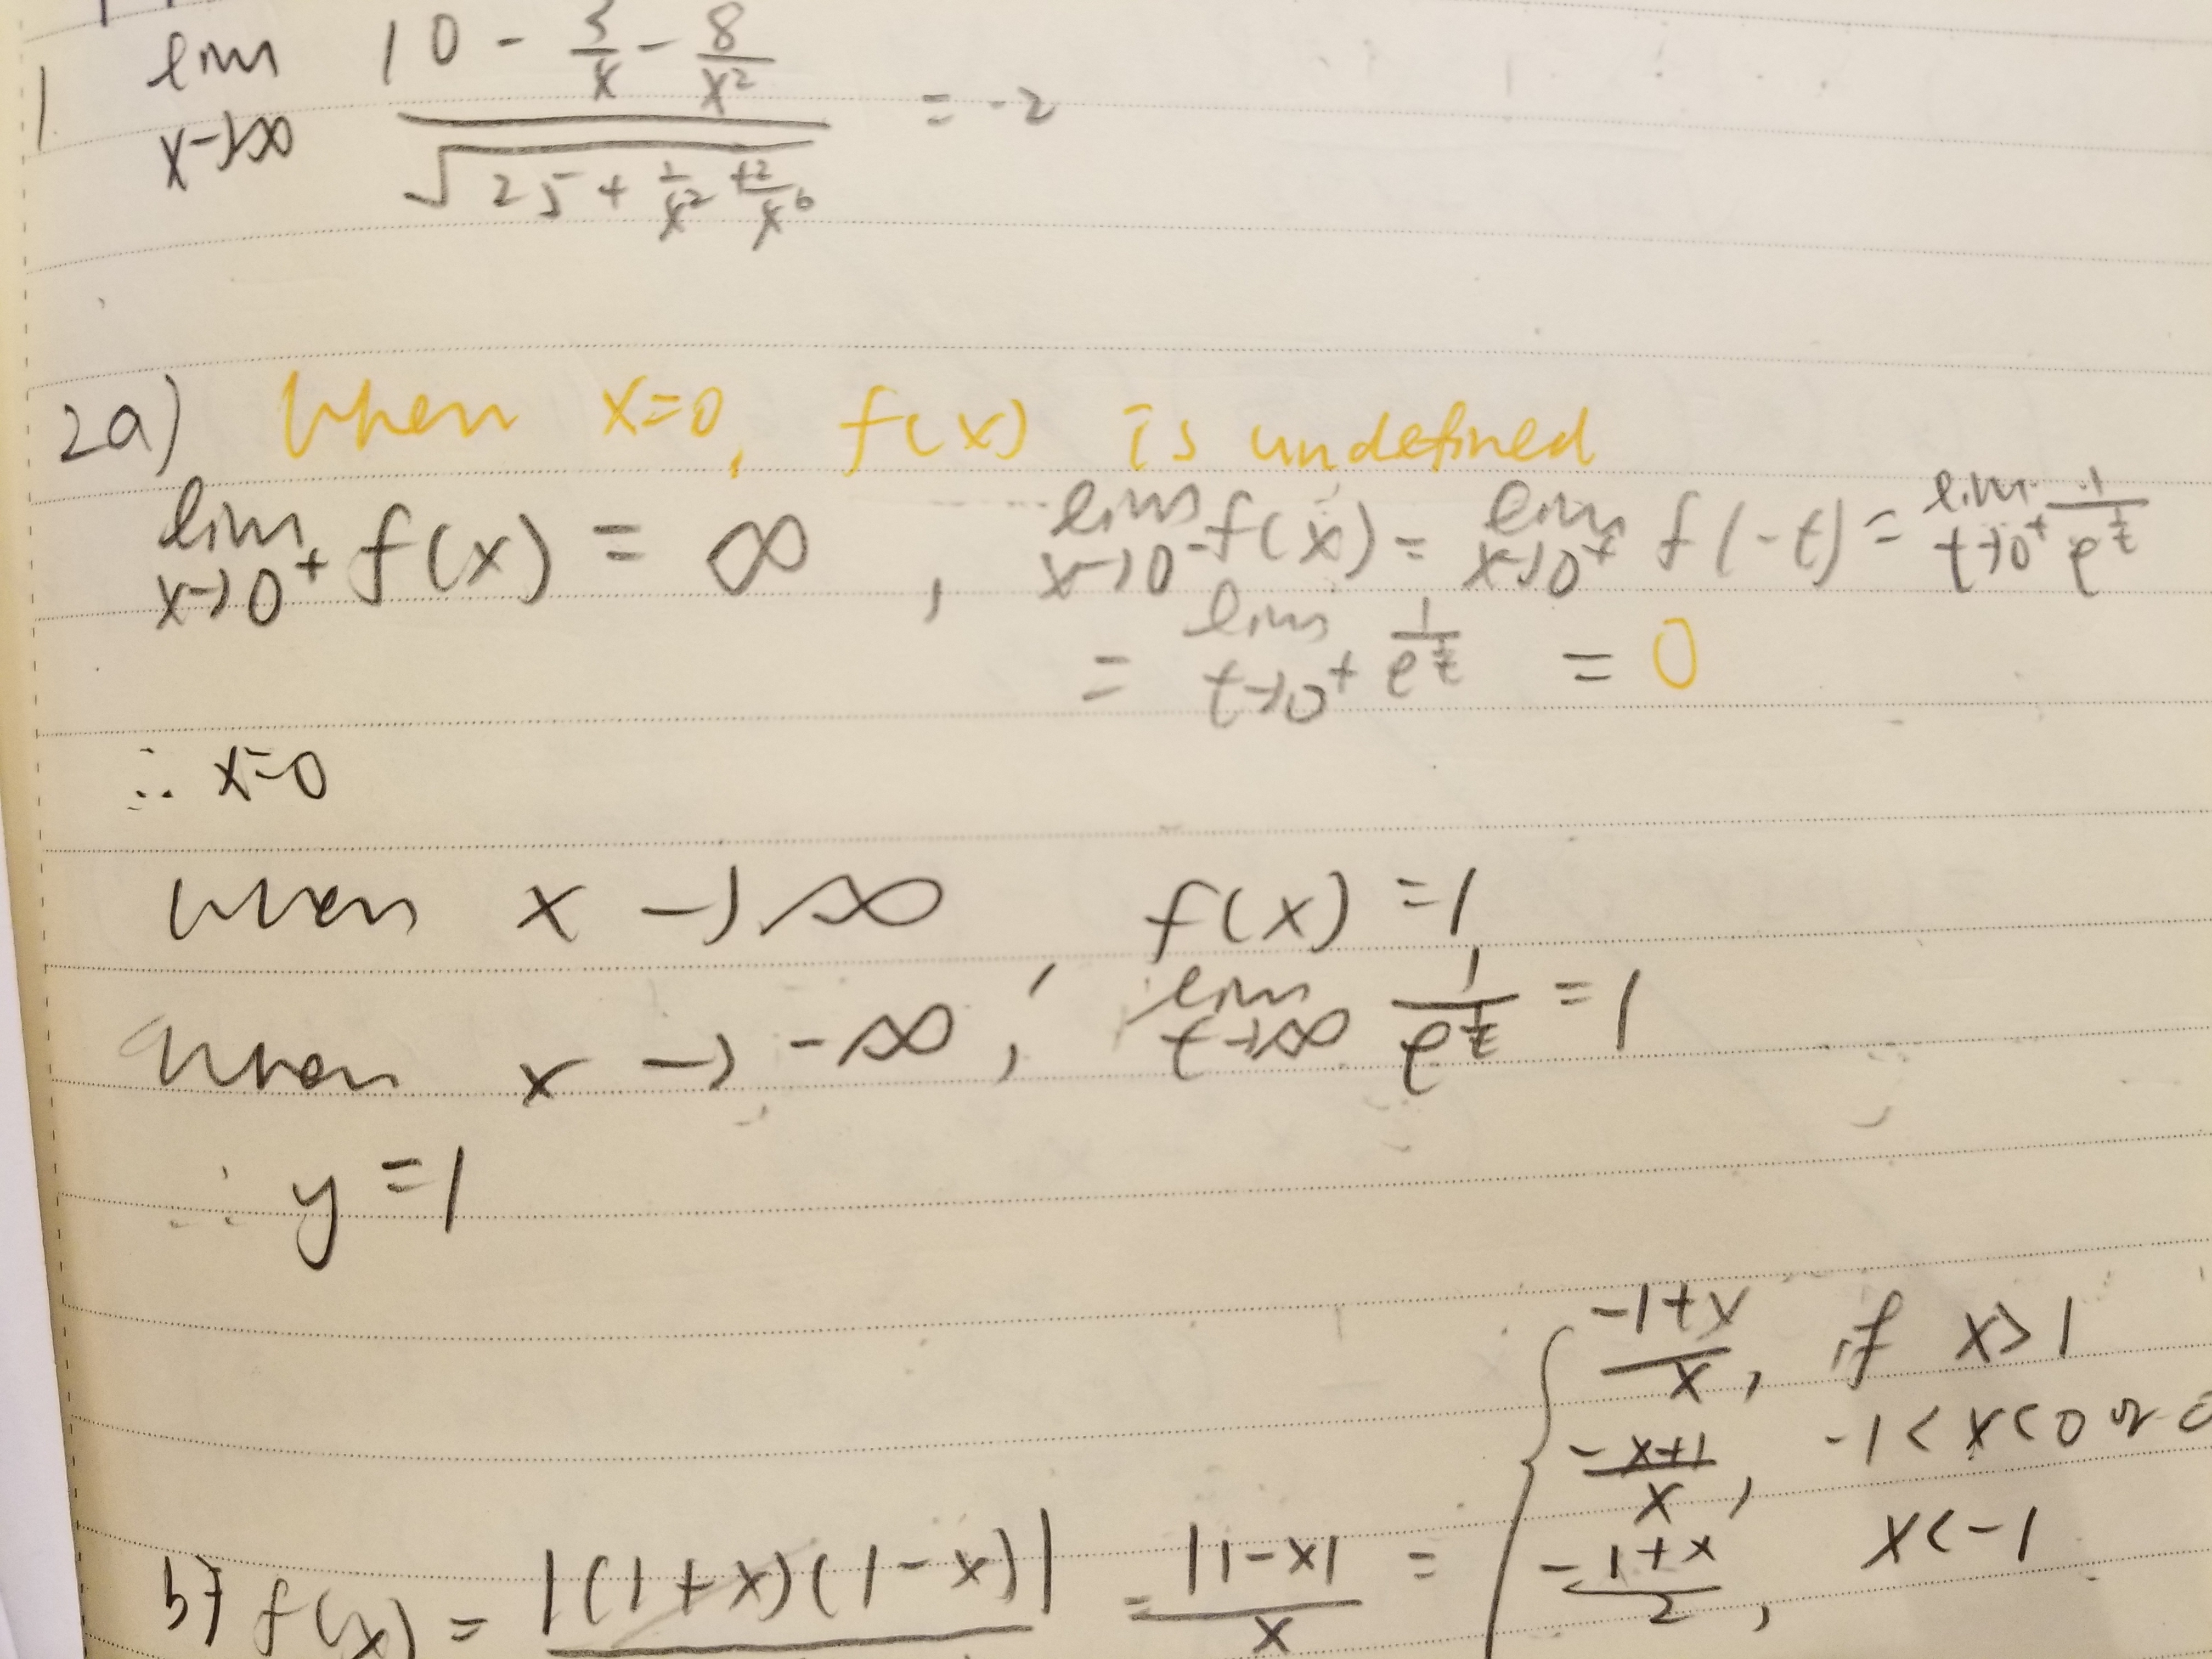 1 lim x→∞ (10 - 3/x - 8/x²) / √(25 + 1/x² + 2/x⁶) = -2
2a) When x=0, f(x) is undefined
lim x→0⁺ f(x) = ∞ , lim x→0⁻ f(x) = lim x→0⁺ f(-t) = lim t→0⁺ 1/e^(1/t)
= lim t→0⁺ 1/e^(1/t) = 0
∴ x=0
when x → ∞ , f(x) = 1
when x → -∞ , lim t→∞ 1/e^(1/t) = 1
∴ y = 1
(-1+x)/x , if x>1
(-x+1)/x , -1<x<0 or
(-1+x)/2 , x<-1
b) f(x) = |(1+x)(1-x)| = |1-x|/x = {